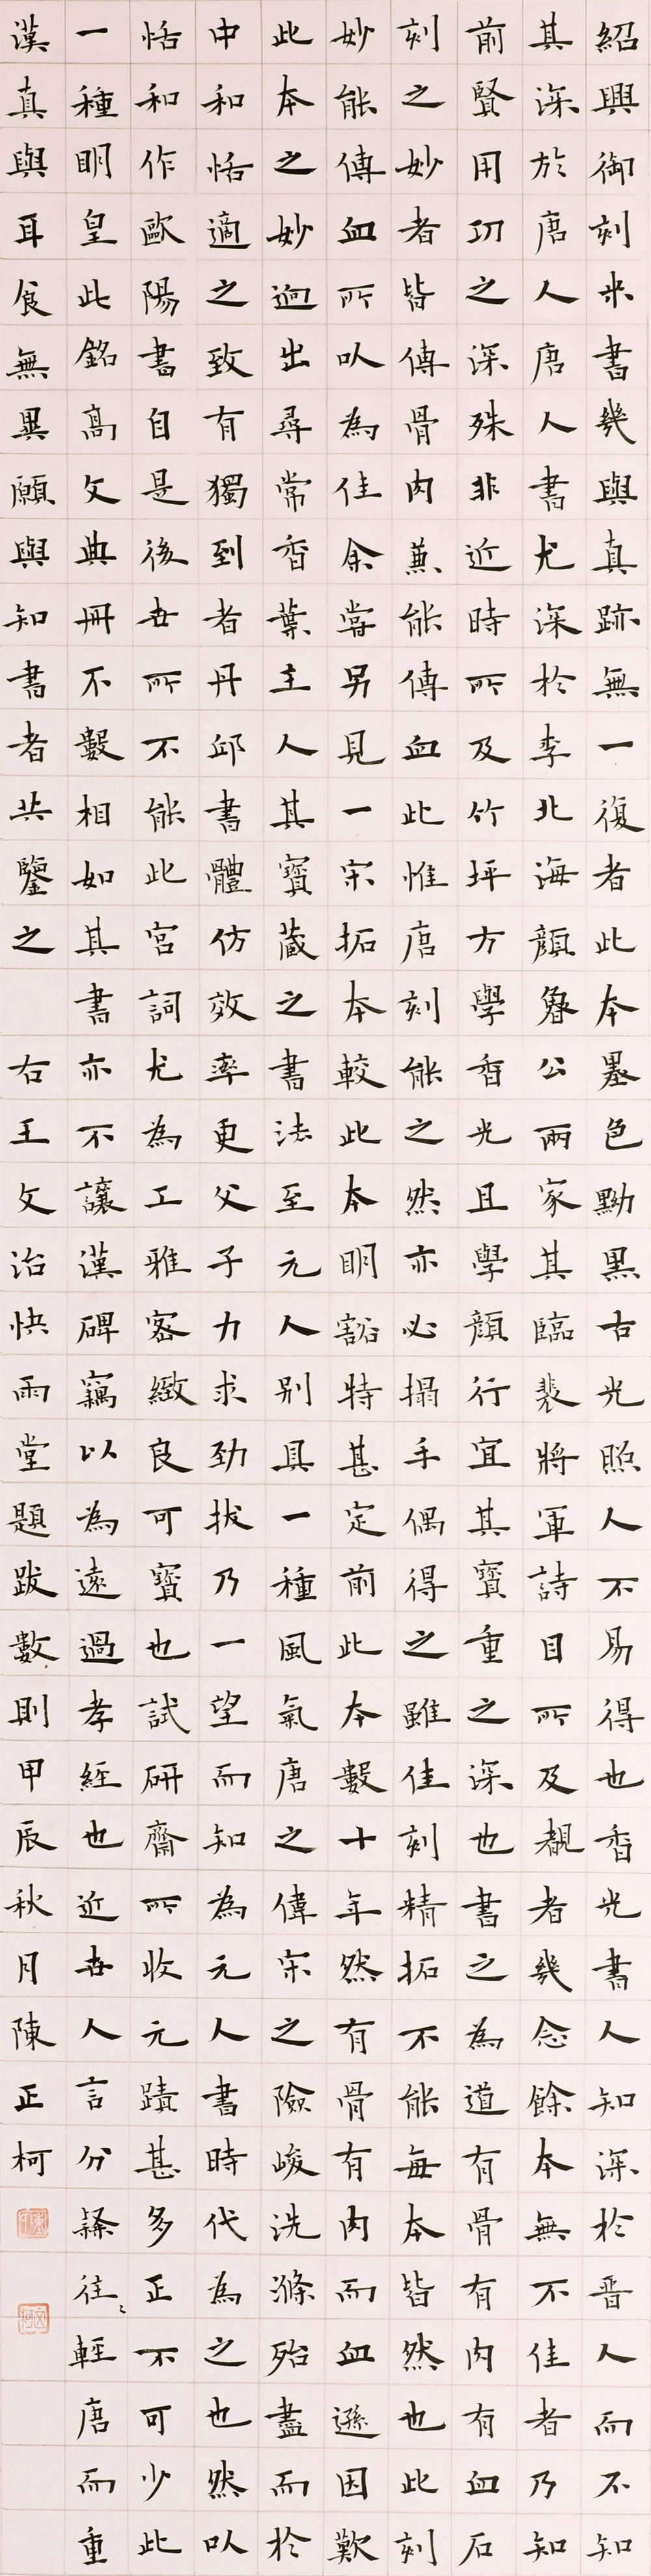 紹興御刻米書幾與真跡無一復者此本墨色黝黑古光照人不易得也香光書人知深於晋人而不知
其深於唐人唐人書尤深於李北海顏魯公兩家其臨裴將軍詩目所及覩者幾念餘本無不佳者乃知
前賢用功之深殊非近時所及竹坪方學香光且學顏行宜其寶重之深也書之為道有骨有肉有血石
刻之妙者皆傳骨肉兼能傳血此惟唐刻能之然亦必搨手偶得之雖佳刻精拓不能每本皆然也此刻
妙能傳血所以為佳余嘗另見一宋拓本較此本明豁特甚定前此本數十年然有骨有肉而血遜因歎
此本之妙迥出尋常香葉主人其寶藏之書法至元人别具一種風氣唐之偉宋之險峻洗滌殆盡而於
中和恬適之致有獨到者丹邱書體仿效率更父子力求勁拔乃一望而知為元人書時代為之也然以
恬和作歐陽書自是後世所不能此宮詞尤為工雅密緻良可寶也試研齋所收元蹟甚多正不可少此
一種明皇此銘高文典冊不數相如其書亦不讓漢碑竊以為遠過孝經也近世人言分隸往〻輕唐而重
漢真與耳食無異願與知書者共鑒之 右王文治快雨堂題跋數則甲辰秋月陳正柯